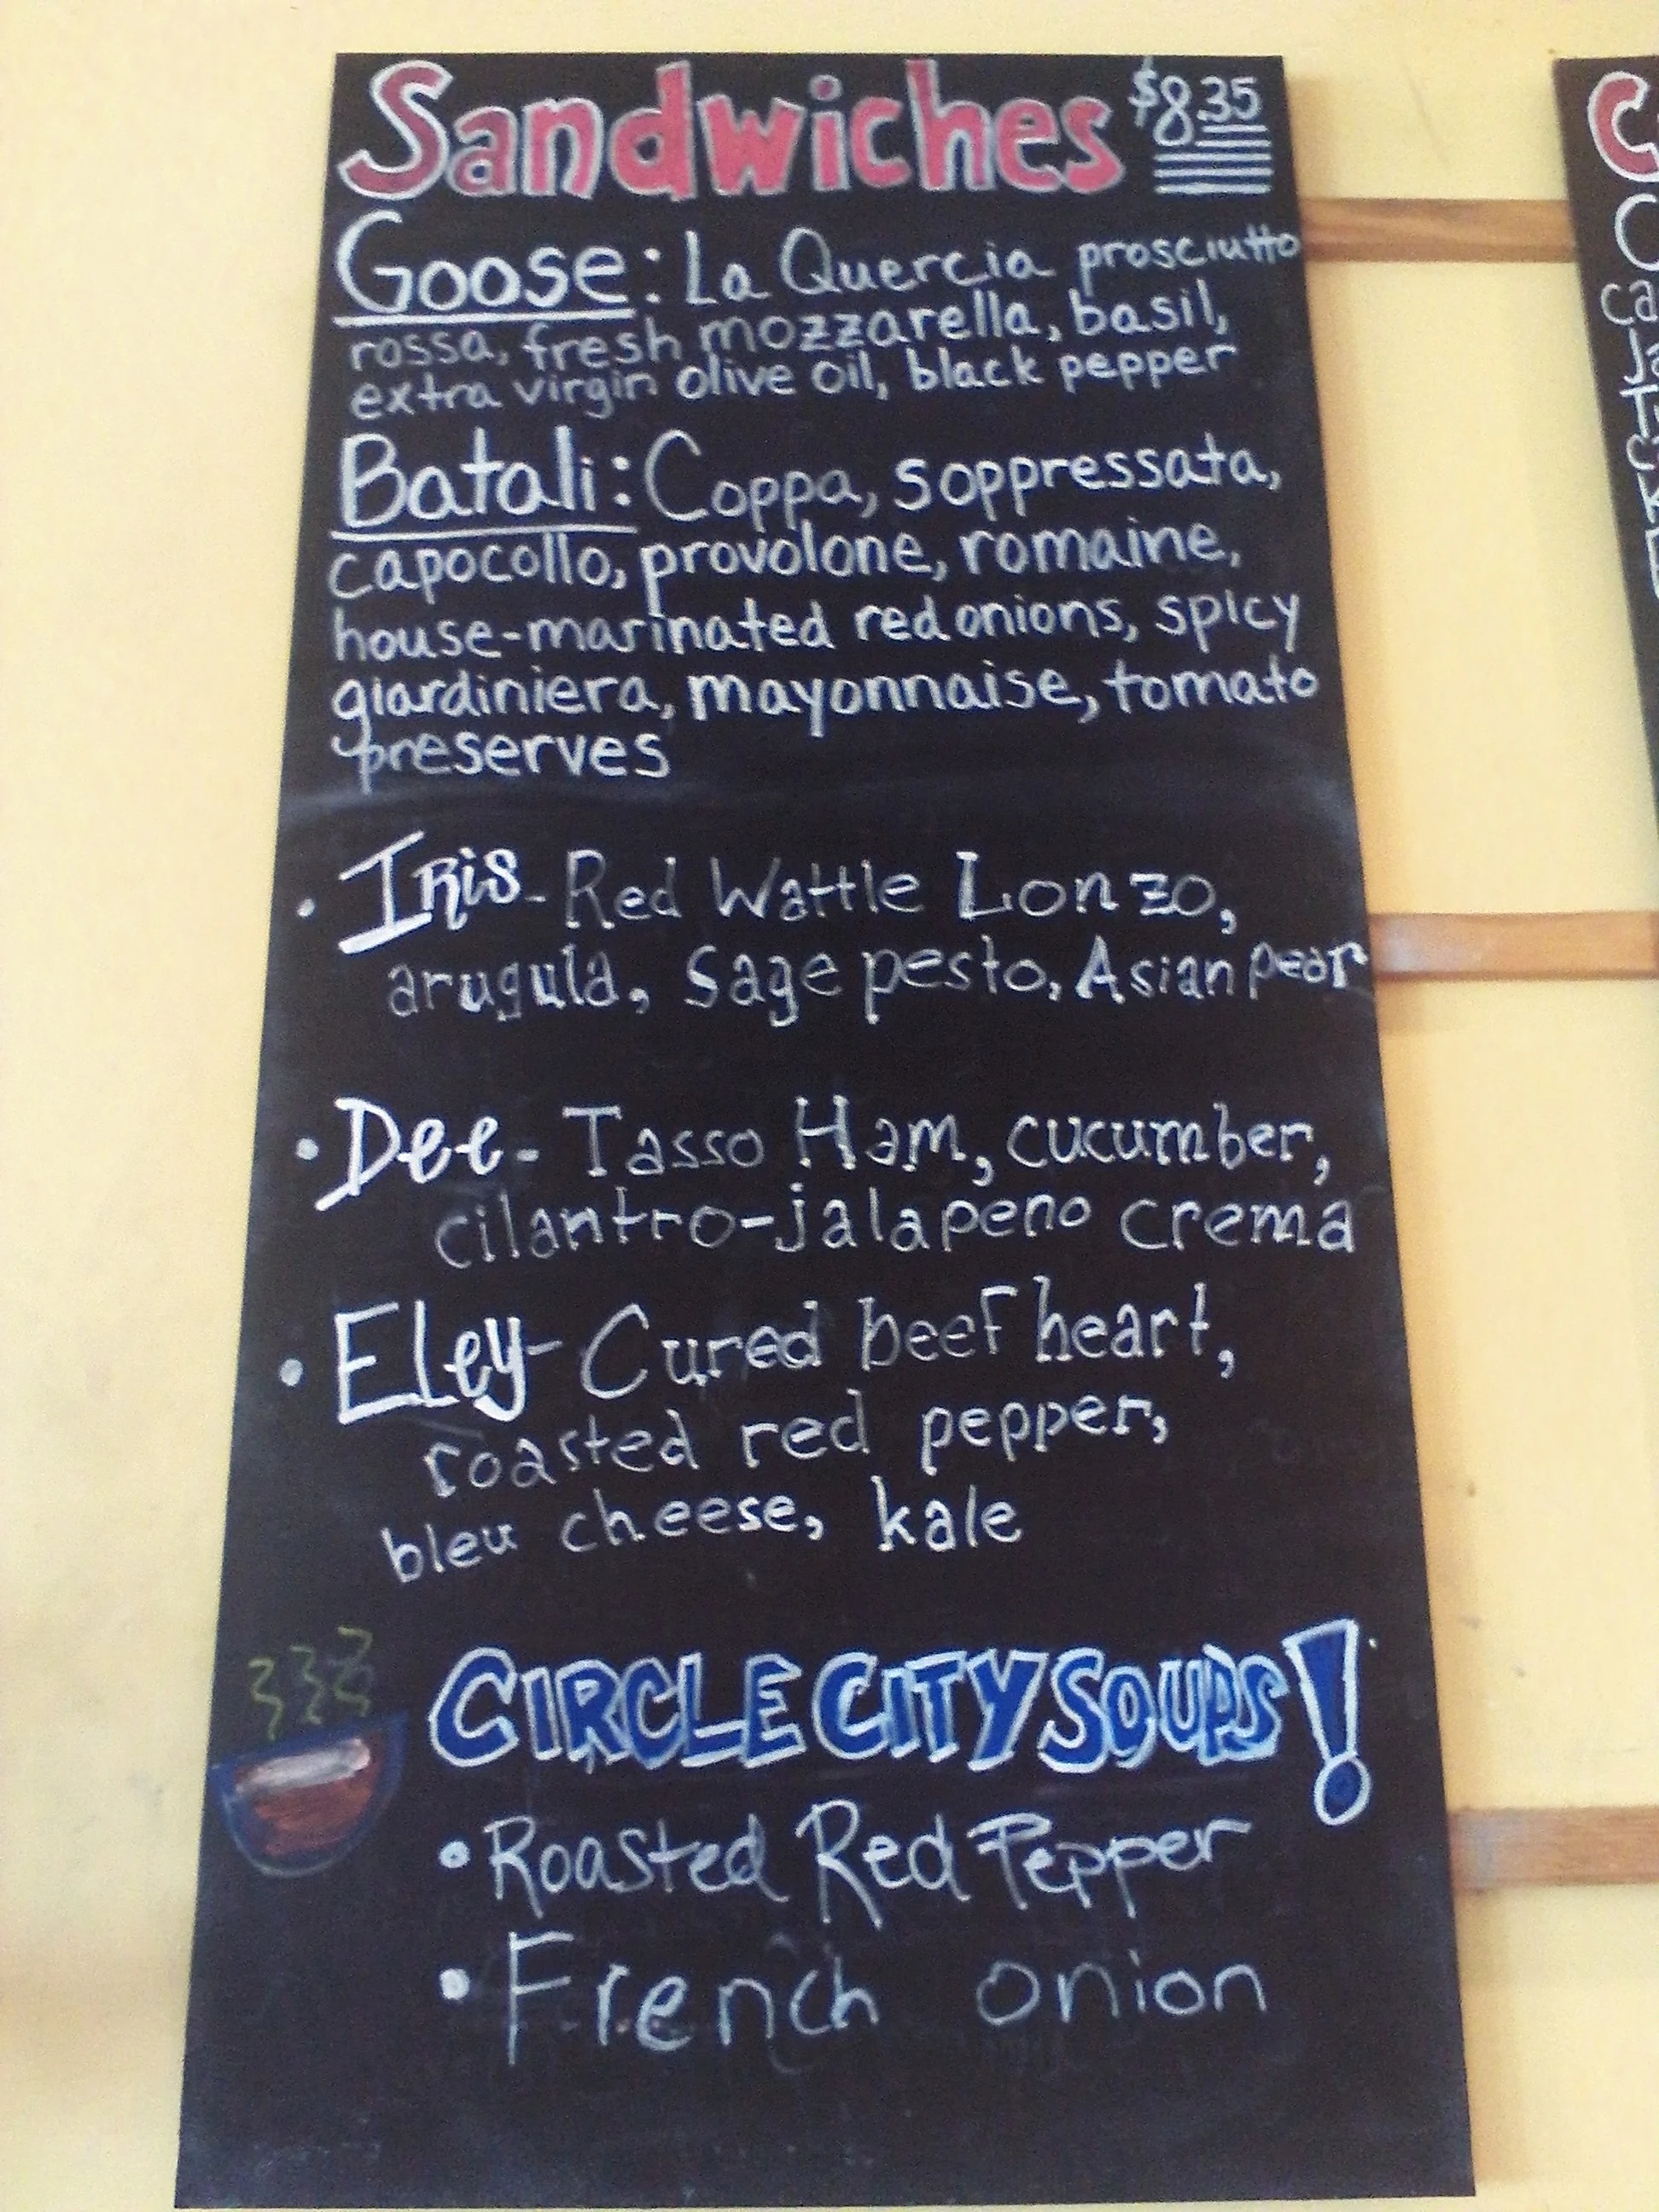 Sandwiches $8.35
Goose: La Quercia prosciutto
rossa, fresh mozzarella, basil,
extra virgin olive oil, black pepper
Batali: Coppa, soppressata,
capocollo, provolone, romaine,
house-marinated red onions, spicy
giardiniera, mayonnaise, tomato
preserves
• Iris - Red Wattle Lonzo,
arugula, sage pesto, Asian pear
• Dee - Tasso Ham, cucumber,
cilantro-jalapeno crema
• Eley - Cured beef heart,
roasted red pepper,
bleu cheese, kale
CIRCLE CITY SOUPS!
• Roasted Red Pepper
• French onion